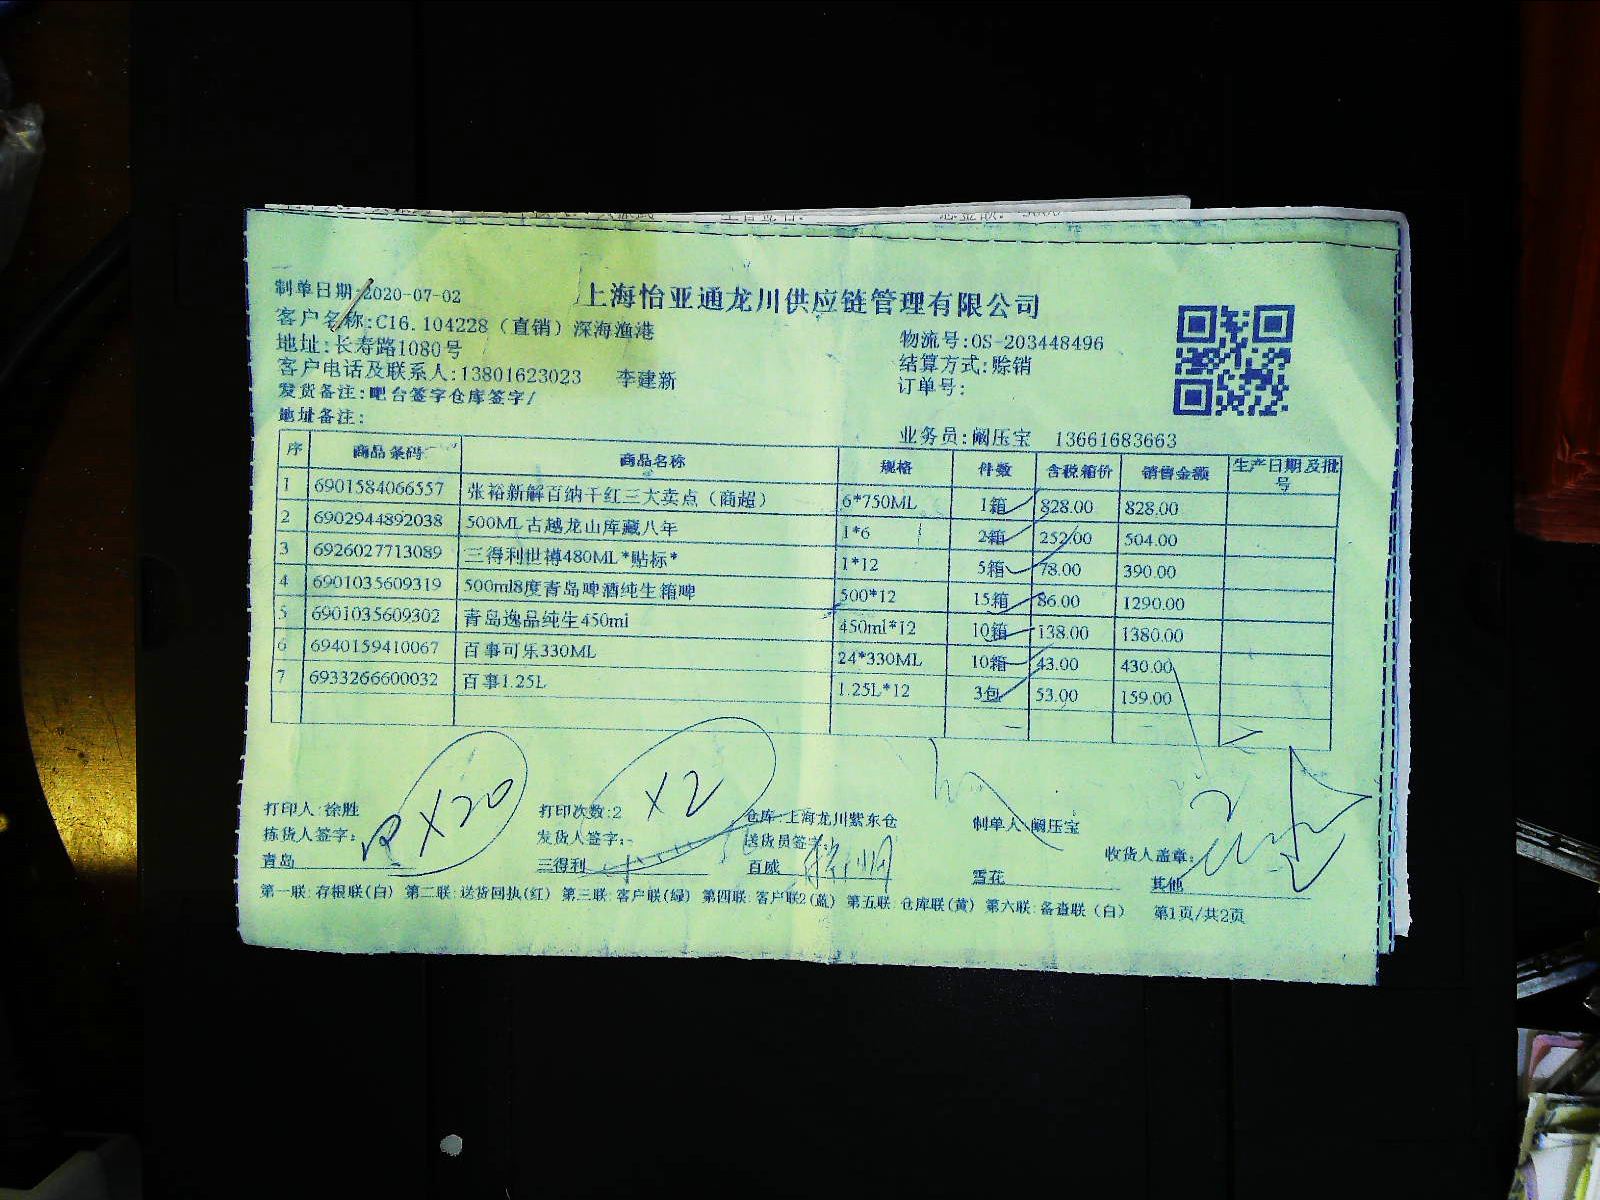 上海怡亚通龙川供应链管理有限公司
制单日期:2020-07-02
客户名称:C16.104228（直销）深海渔港
物流号:OS-203448496
地址:长寿路1080号
结算方式:赊销
客户电话及联系人:13801623023 李建新
订单号:
发货备注:吧台签字仓库签字/
地址备注:
业务员:阚压宝 13661683663
序 商品条码 商品名称 规格 件数 含税箱价 销售金额 生产日期及批号
1 6901584066557 张裕新解百纳干红三大卖点（商超） 6*750ML 1箱 828.00 828.00
2 6902944892038 500ML古越龙山库藏八年 1*6 2箱 252.00 504.00
3 6926027713089 三得利世博480ML*贴标* 1*12 5箱 78.00 390.00
4 6901035609319 500ml8度青岛啤酒纯生箱啤 500*12 15箱 86.00 1290.00
5 6901035609302 青岛逸品纯生450ml 450ml*12 10箱 138.00 1380.00
6 6940159410067 百事可乐330ML 24*330ML 10箱 43.00 430.00
7 6933266600032 百事1.25L 1.25L*12 3包 53.00 159.00
X20
X2
2
打印人:徐胜 打印次数:2 仓库:上海龙川紫东仓 制单人:阚压宝
拣货人签字: 发货人签字: 送货员签字: 收货人盖章:
青岛 三得利 百威 雪花 其他
第一联:存根联(白) 第二联:送货回执(红) 第三联:客户联(绿) 第四联:客户联2(蓝) 第五联:仓库联(黄) 第六联:备查联（白） 第1页/共2页